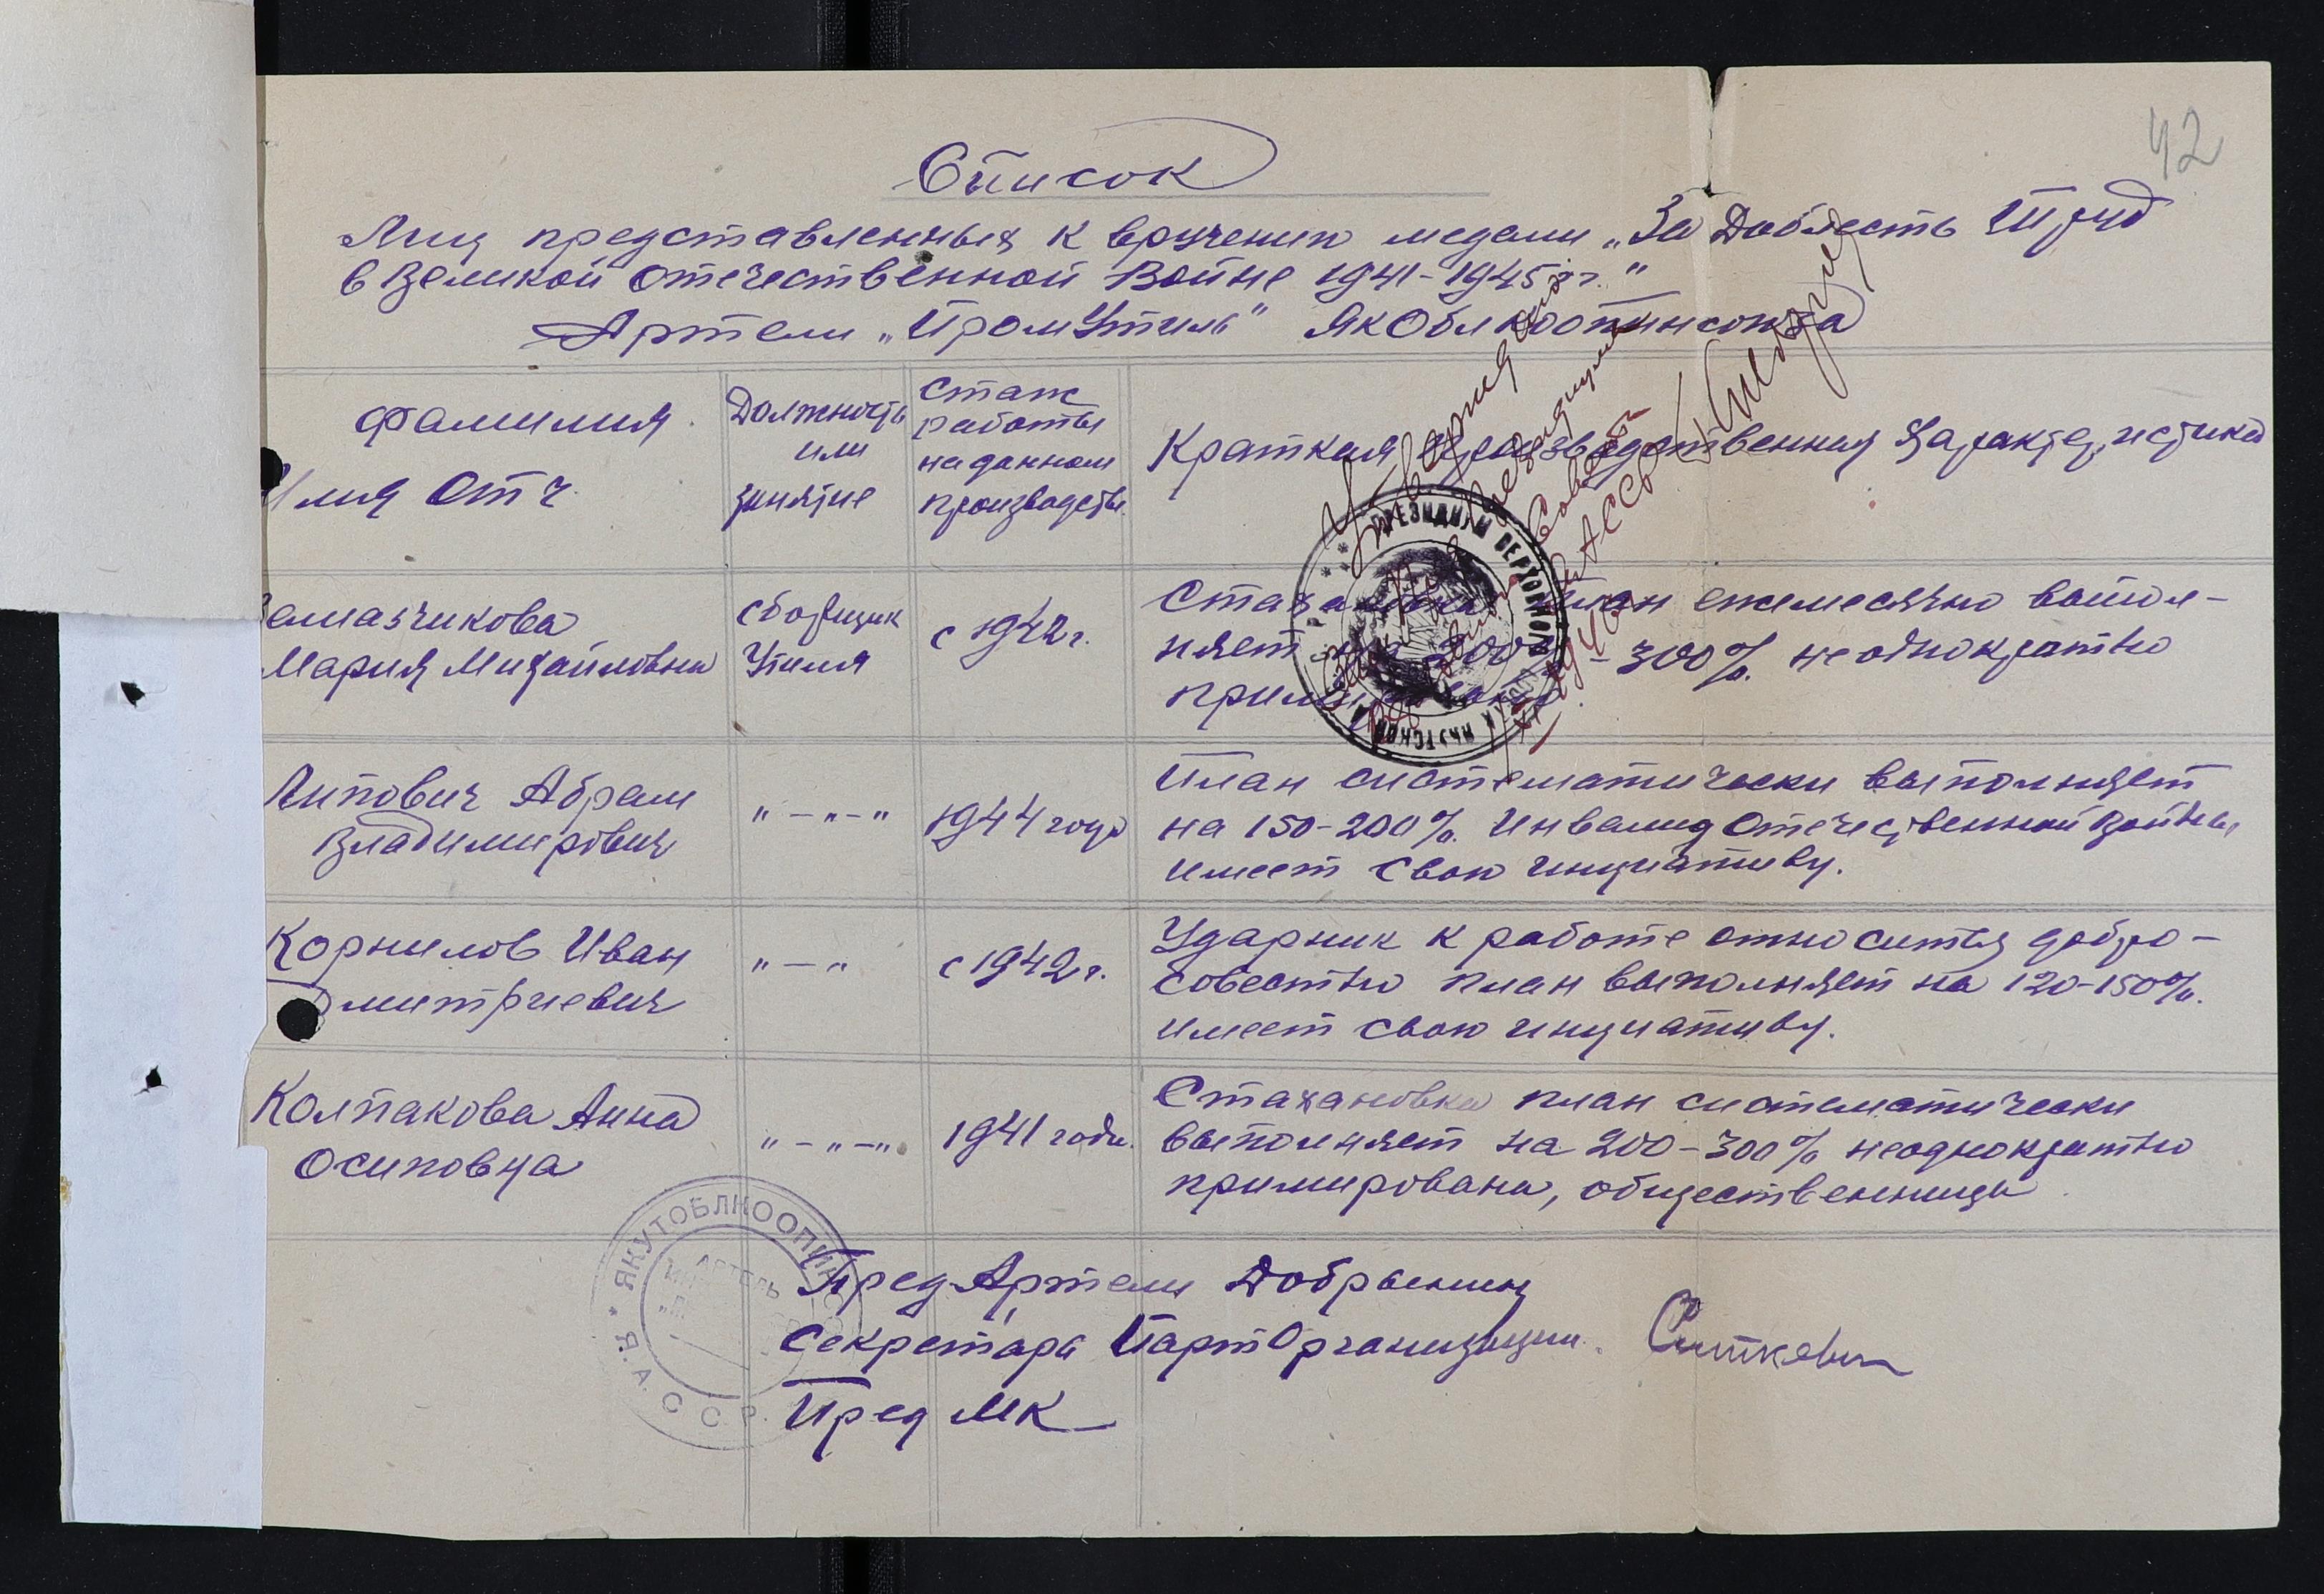 42
Список
Лиц представленных к вручению медали „За Доблесть Труд
в Великой Отечественной Войне 1941-1945 гг."
Артели „ПромУтиль" ЯкОблкоопинсоюза
Фамилия
Имя Отч.
Должность
или
занятие
Стаж
работы
на данном
производстве
Краткая производственная характеристика
Мария Михайловна
сборщик
Утиля
с 1942 г.
Стахановка план ежемесячно выпол-
няет на 200 - 300% неоднократно
Липович Абрам
Владимирович
" - " - "
1944 года
План систематически выполняет
на 150-200%. Инвалид Отечественной Войны,
имеет свою инициативу.
Корнилов Иван
Дмитриевич
" - "
с 1942 г.
Ударник к работе относится добро-
совестно план выполняет на 120-150%.
имеет свою инициативу.
Колпакова Анна
Осиповна
" - " - "
1941 года.
Стахановка план систематически
выполняет на 200-300% неоднократно
примирована, общественница
Пред Артели Добрынин
Секретарь ПартОрганизации. Ситкевич
Пред МК
ПРЕЗИДИУМ ВЕРХОВНОГО
ЯКУТСКОЙ
ЯКУТОБЛКООПИН
АРТЕЛЬ
Я. А. С. С. Р.